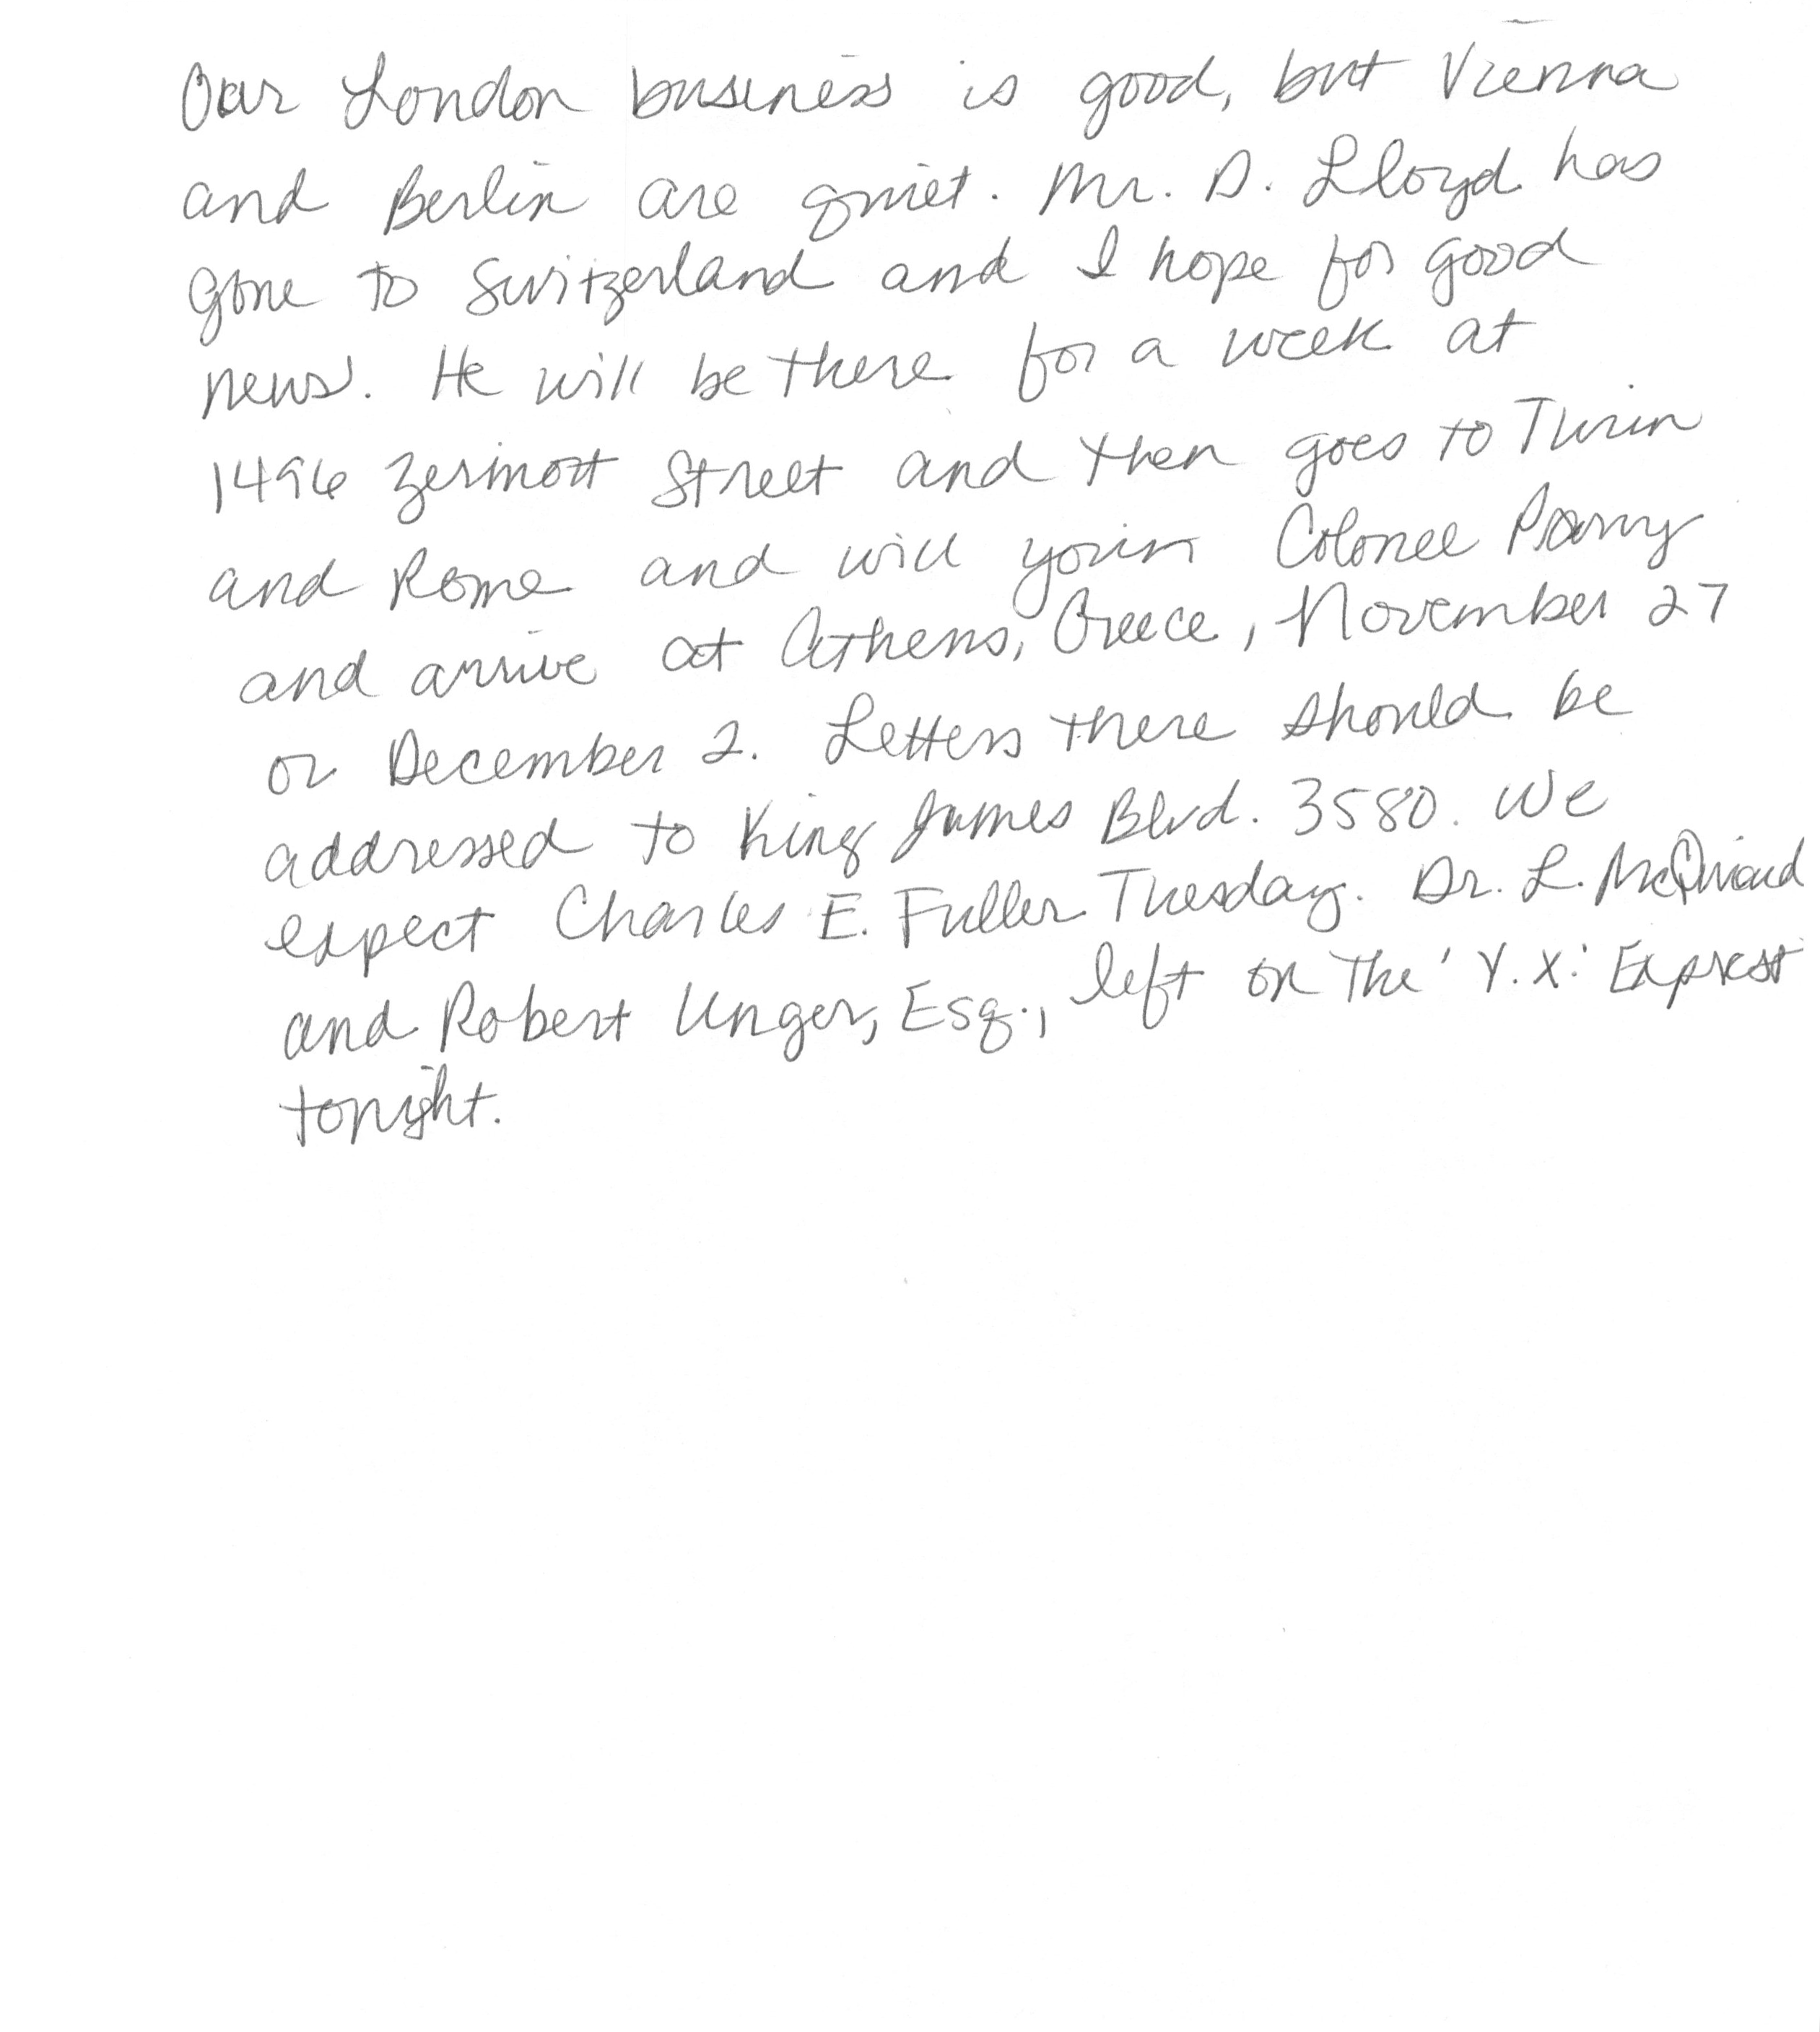 Our London business is good, but Vienna
and Berlin are quiet. Mr. D. Lloyd has
gone to Switzerland and I hope for good
news. He will be there for a week at
1496 Zermott Street and then goes to Turin
and Rome and will join Colonel Parry
and arrive at Athens, Greece, November 27
or December 2. Letters there should be
addressed to King James Blvd. 3580. We
expect Charles E. Fuller Tuesday. Dr. L. McQuaid
and Robert Unger, Esq., left on the 'Y.X.' Express
tonight.